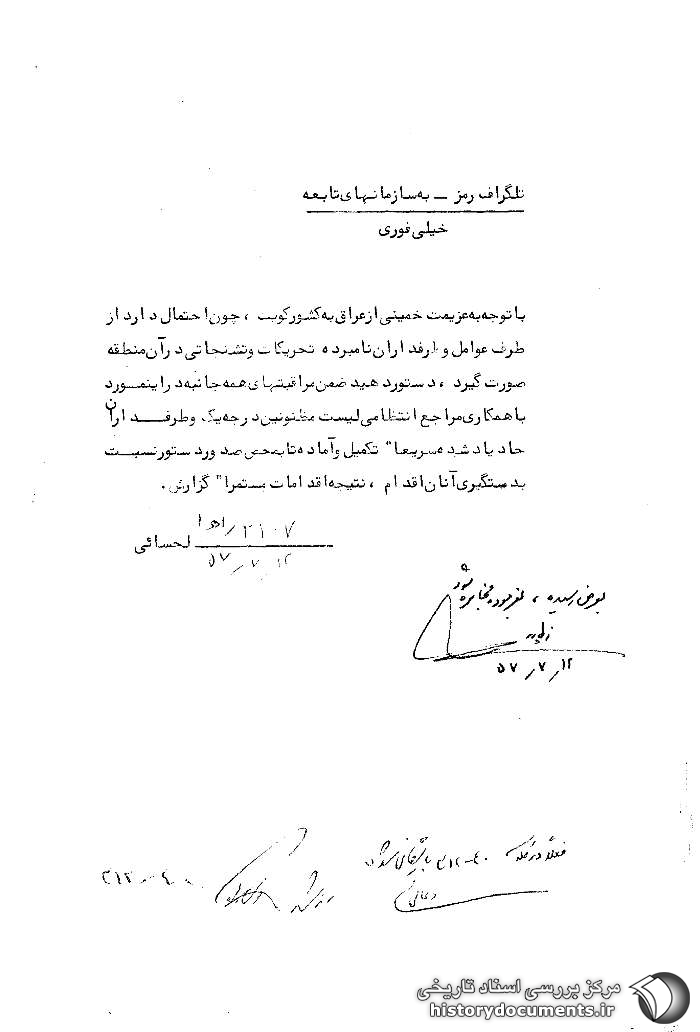 تلگراف رمز ــ به سازمانهای تابعه
خیلی فوری
با توجه به عزیمت خمینی از عراق به کشور کویت ، چون احتمال دارد از
طرف عوامل و طرفداران نامبرده تحریکات و تشنجاتی در آن منطقه
صورت گیرد ، دستور دهید ضمن مراقبتهای همه جانبه در اینمورد
با همکاری مراجع انتظامی لیست مظنونین درجه یک و طرفداران
حاد یاد شده سریعا" تکمیل و آماده تا بمحض صدور دستور نسبت
بدستگیری آنان اقدام ، نتیجه اقدامات مستمرا" گزارش .
۳۱۰۷
لحسائی
۵۷/۷/۱۲
بعرض رسیده ، مخابره شود
۵۷/۷/۱۲
فعلاً در ۳۱۲-۴۰ بایگانی شود
۳۱۲-۴۰
مرکز بررسی اسناد تاریخی
historydocuments.ir